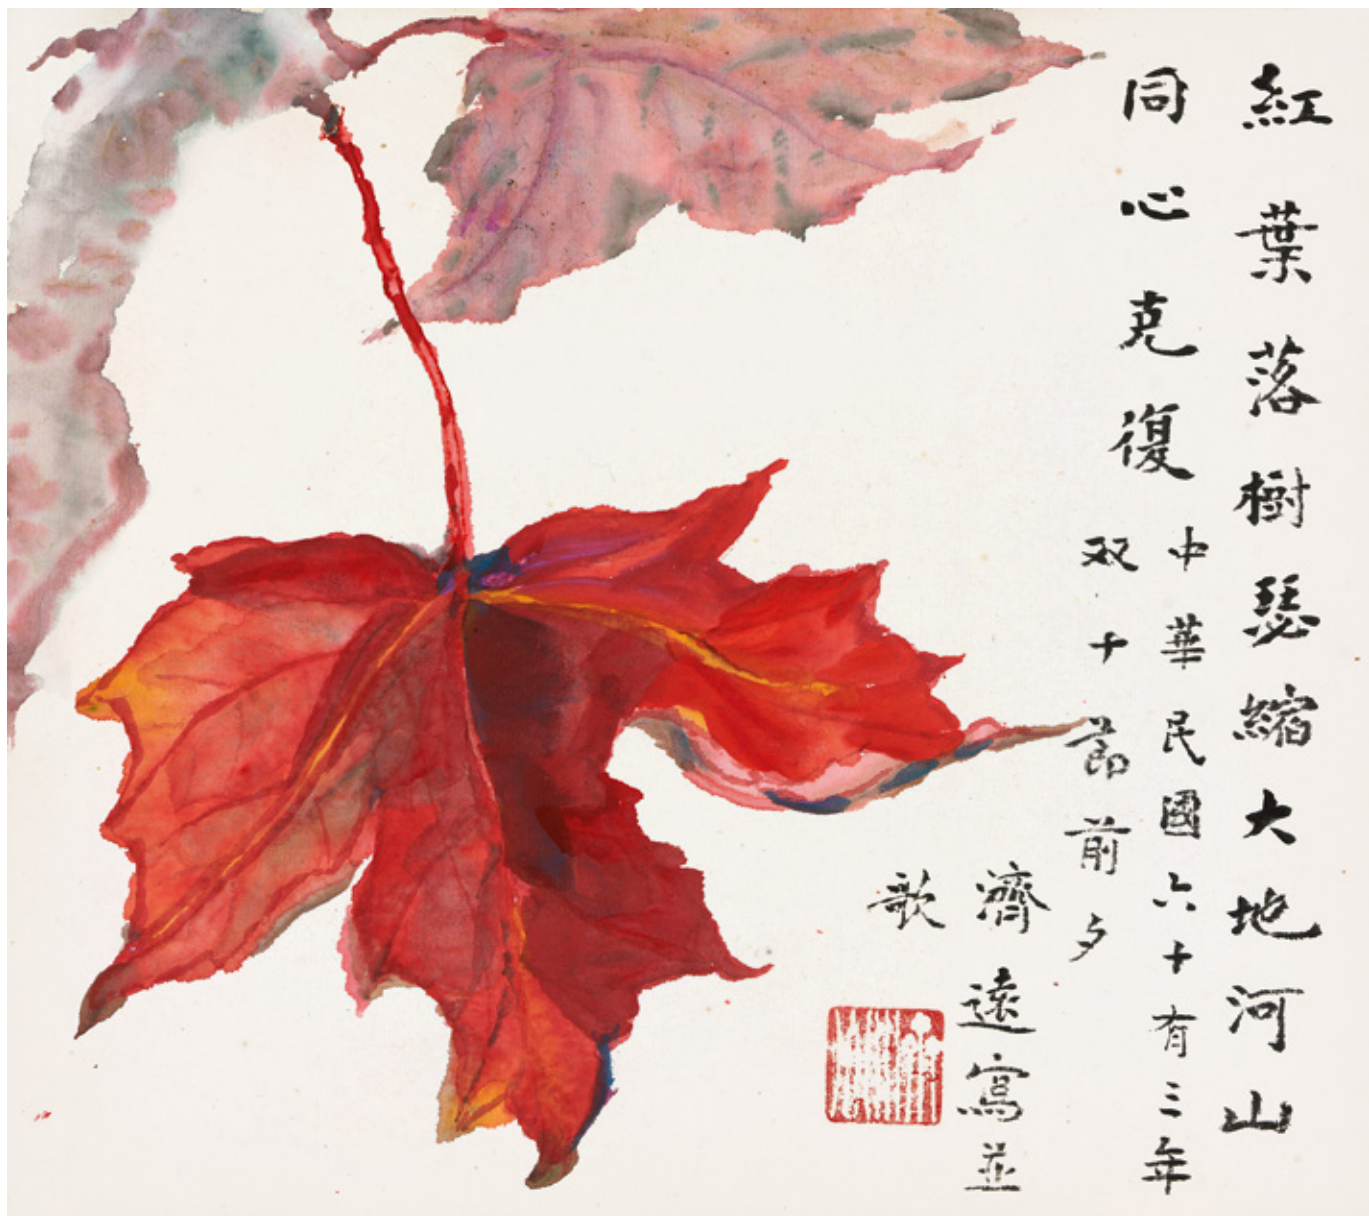 紅葉落樹瑟縮大地河山
同心克復
中華民國六十有三年
双十節前夕
濟遠寫並
歌